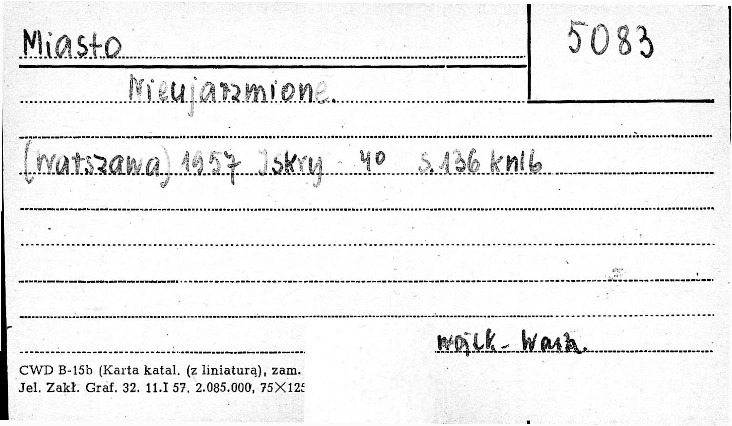 Miasto
5083
Nieujarzmione.
(Warszawa) 1957 Iskry 4° s. 136 knlb
Warsz.
CWD B-15b (Karta katal. (z liniaturą), zam.
Jel. Zakł. Graf. 32. 11.I 57. 2.085.000, 75×125